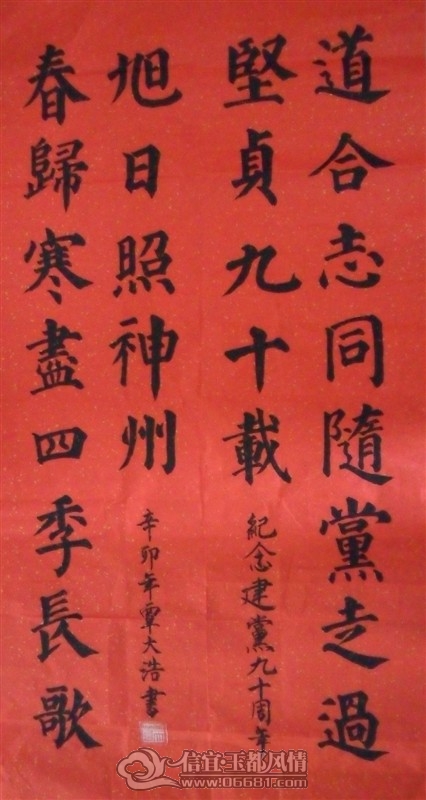 道合志同隨黨走過
堅貞九十載
紀念建黨九十周年
春歸寒盡四季長歌
旭日照神州
辛卯年覃大浩書
信宜·玉都风情
www.06681.com